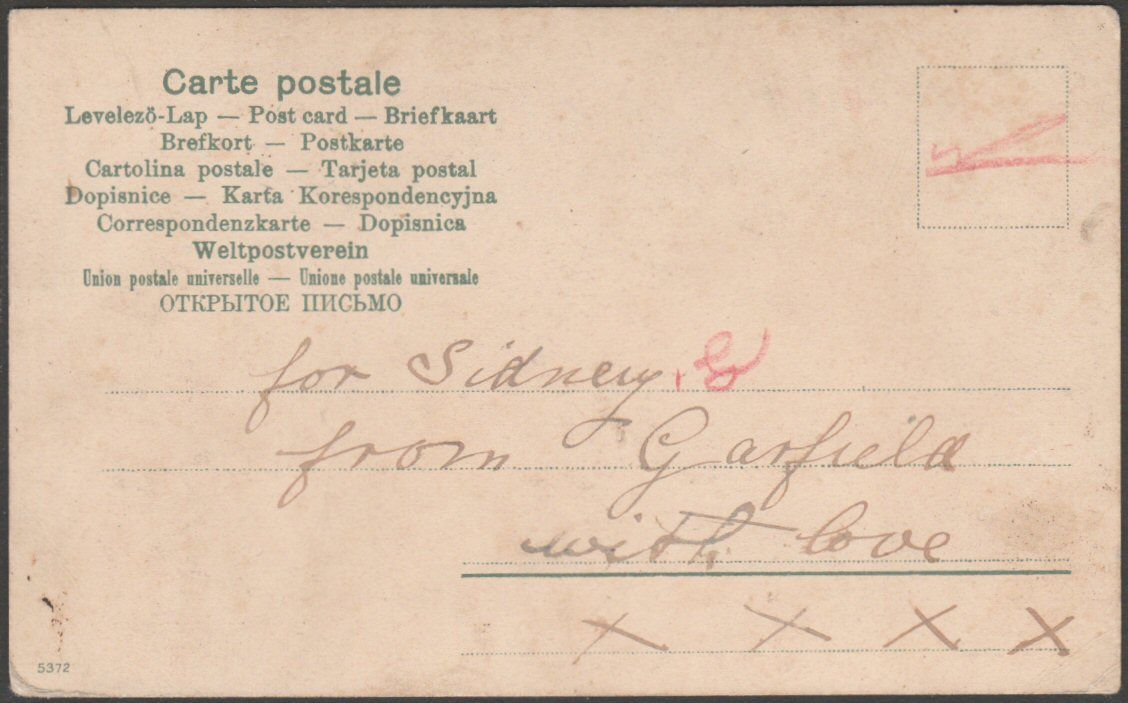 Carte postale
Levelező-Lap — Post card — Briefkaart
Brefkort — Postkarte
Cartolina postale — Tarjeta postal
Dopisnice — Karta Korespondencyjna
Correspondenzkarte — Dopisnica
Weltpostverein
Union postale universelle — Unione postale universale
ОТКРЫТОЕ ПИСЬМО
for Sidney
from Garfield
with love
X X X X
5372